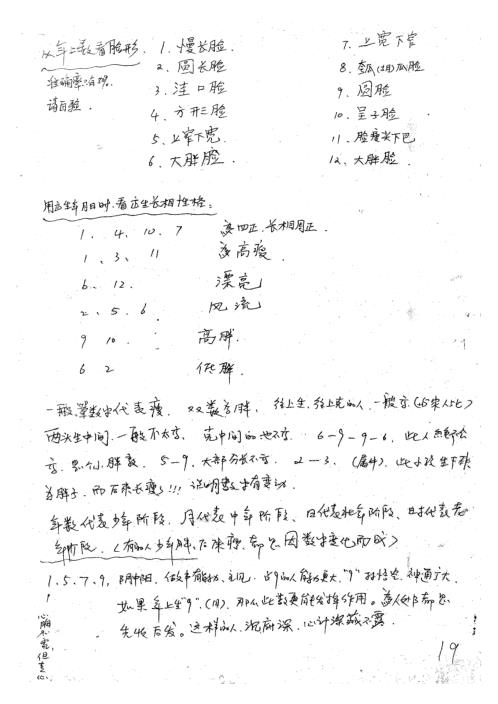 从年上数看脸形.
准确率有限.
请自验.
1. 慢长脸.
2. 圆长脸
3. 洼口脸
4. 方形脸
5. 上窄下宽.
6. 大胖脸.
7. 上宽下窄
8. 瓜脸
9. 圆脸
10. 呈子脸
11. 脸瘦尖下巴
12. 大胖脸.
用出生年月日时.看出生长相性格:
1. 4. 10. 7 四正.长相周正.
1、3、11 高瘦.
6、12. 漂亮
2、5、6 风流
9 10. 高胖.
6 2 低胖.
一般单数字代表瘦. 双数字胖. 往上生.往上克的人.一般高
两头生中间.一般不太高. 克中间的也不高. 6-9-9-6. 此人
5-9.大部分长不高. 2-3. (属牛). 此小孩生下很
为胖子.而后来长瘦了!!! 说明数字有变动.
年数代表少年阶段.月代表中年阶段、日代表壮年阶段、时代表老
年阶段.(有的人少年胖.后来瘦.都是因数字变化而成)
1.5.7.9, 阴中阳.做事有能力.主见. 的人能力更大."9"神通广大.
如果年上生"9".(月).那么此数更能发挥作用。都是
先收后发。这样的人.沉府深.心计深藏不露.
心胸不宽,但专心.
19